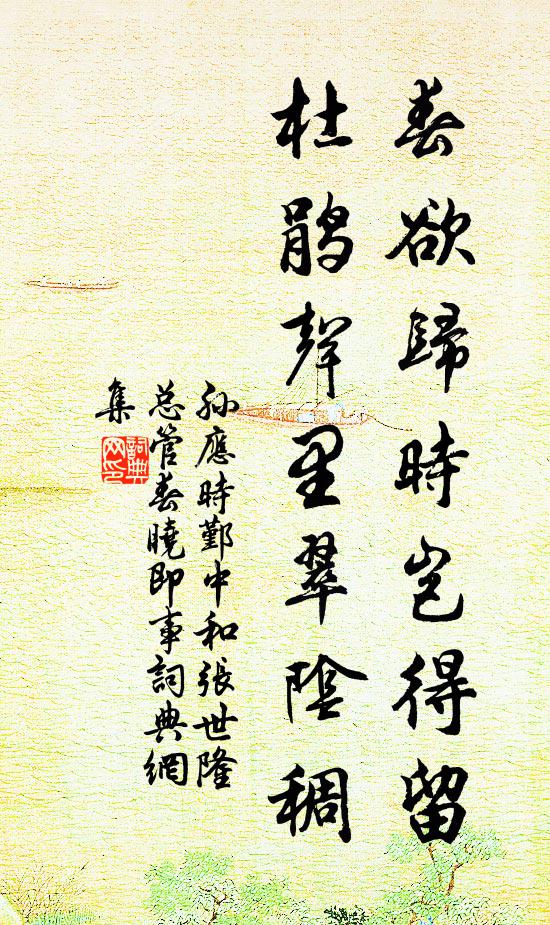 春欲歸時豈得留
杜鵑聲里翠陰稠
孫應時鄞中和張世隆
总管春曉即事詞典網
集
詞典
网印